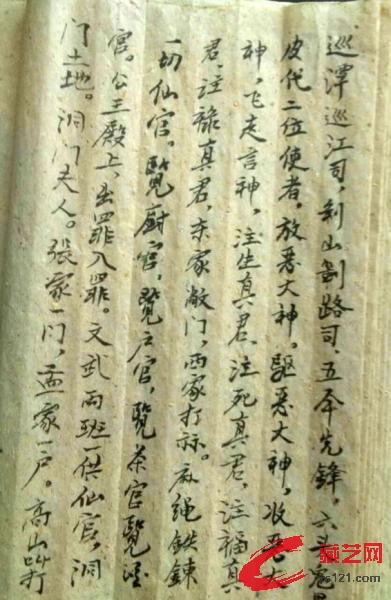 巡潭巡江司,剁山剁路司,五伞先锋,六斗
皮代二位使者,放恶大神。驱恶大神,收恶大
神,飞走言神,注生真君,注死真君,注福真
君,注禄真君,东家敝门,西家打标。麻绳铁鍊
一切仙官。覧厨官,覧户官,覧茶官覧
官。公王殿上,出罪入罪。文武两班一供仙官,洞
门土地。洞门夫人。張家一门,孟家一户。高山
藏艺网
121.com